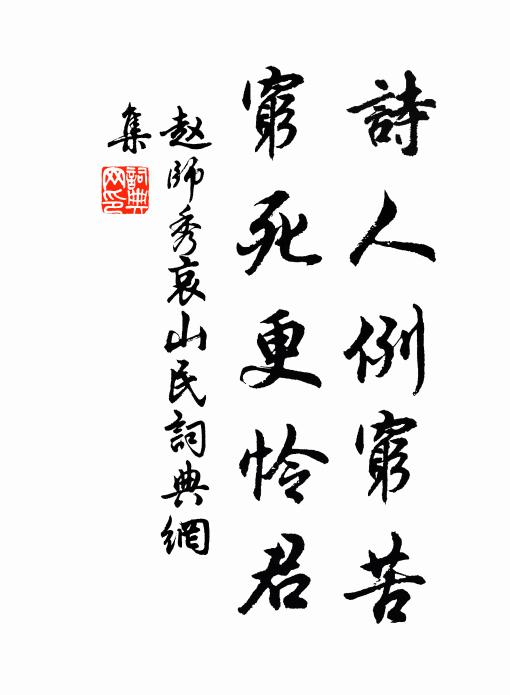 詩人例窮苦
窮死更怜君
赵師秀哀山民詞典網
集
詞典網印